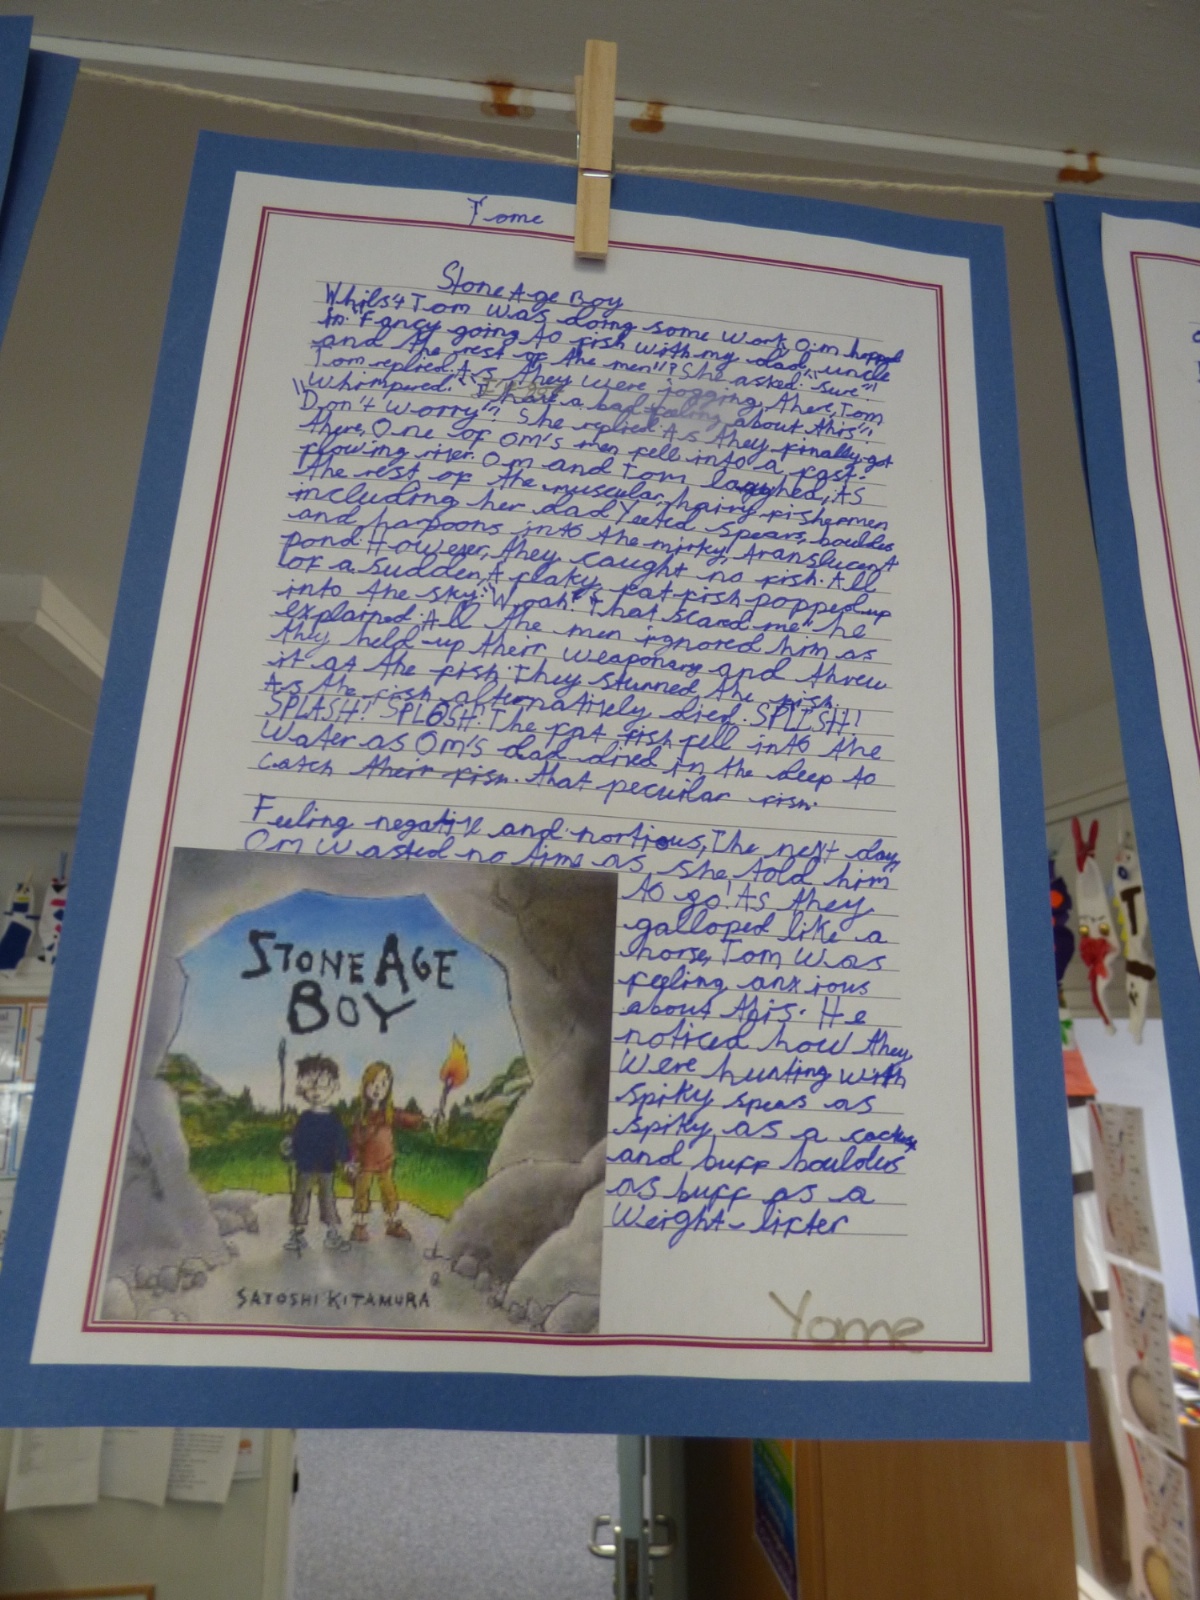 Yome
Stone Age Boy
Whilst Tom was doing some work Om hopped
in. "Fancy going to fish with my dad, uncle
and the rest of the men"? She asked. "Sure"!
Tom replied. As they were jogging there, Tom
whimpered. "I have a bad feeling about this".
"Don't worry"? She replied. As they finally got
there, One of Om's men fell into a fast-
flowing river. Om and Tom laughed, as
the rest of the muscular, hairy fishermen
including her dad Yeeted spears, boulders
and harpoons into the mirky, translucent
pond. However, they caught no fish. All
of a sudden, A flaky, fat fish popped up
into the sky. "Woah! That scared me" he
explained. All the men ignored him as
they held up their weaponary and threw
it at the fish. They stunned the fish.
As the fish alternatively died. SPLISH!
SPLASH! SPLOSH! The fat fish fell into the
water as Om's dad dived in the deep to
catch their fish. that peculiar fish.
Feeling negative and nortious, The next day,
Om wasted no time as she told him
to go! As they
galloped like a
horse, Tom was
feeling anxious
about this. He
noticed how they
were hunting with
spiky spears as
spiky as a cactus
and buff boulders
as buff as a
weight-lifter
STONE AGE
BOY
SATOSHI KITAMURA
Yome